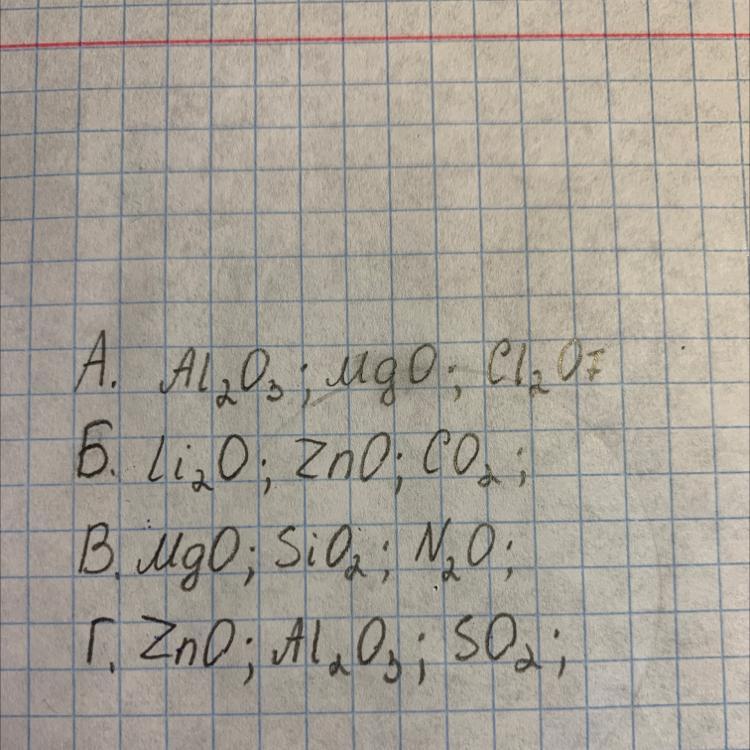 А. Al₂O₃; MgO; Cl₂O₇
Б. Li₂O; ZnO; CO₂;
В. MgO; SiO₂; N₂O;
Г. ZnO; Al₂O₃; SO₂;